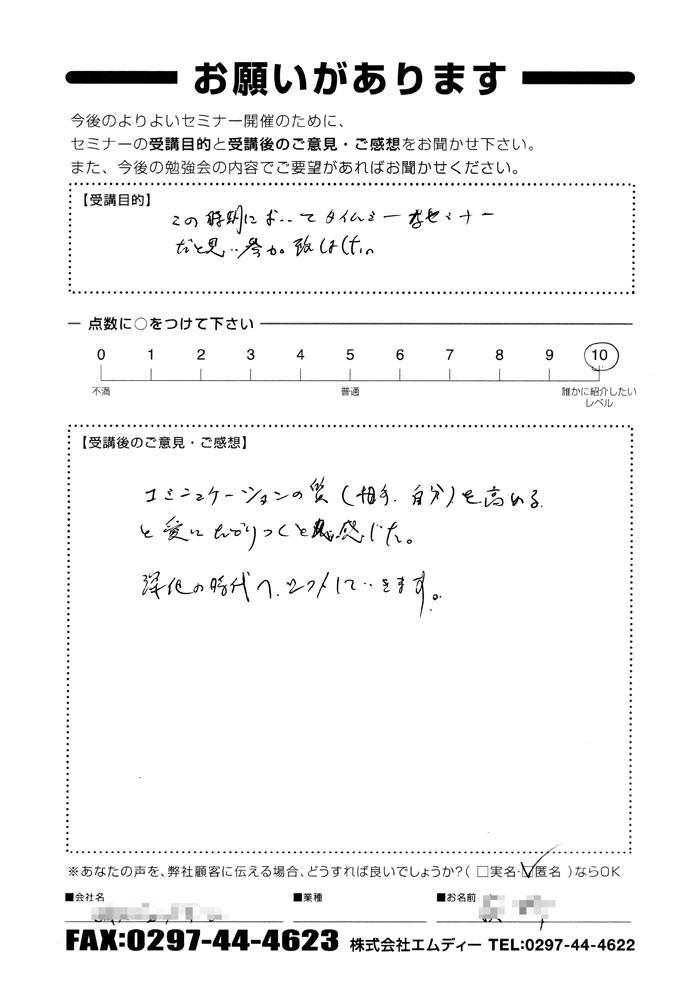 お願いがあります
今後のよりよいセミナー開催のために、
セミナーの受講目的と受講後のご意見・ご感想をお聞かせ下さい。
また、今後の勉強会の内容でご要望があればお聞かせください。
【受講目的】
この時期においてタイムリーなセミナー
だと思い参加致しました
点数に○をつけて下さい
0 1 2 3 4 5 6 7 8 9 10
不満 普通 誰かに紹介したい
レベル
【受講後のご意見・ご感想】
コミニュケーションの質(相手、自分)を高める
と愛にたどりつくと感じた。
深化の時代へ、シフトしていきます。
※あなたの声を、弊社顧客に伝える場合、どうすれば良いでしょうか?( □実名・□匿名 )ならOK
■会社名 ■業種 ■お名前
FAX:0297-44-4623 株式会社エムディー TEL:0297-44-4622